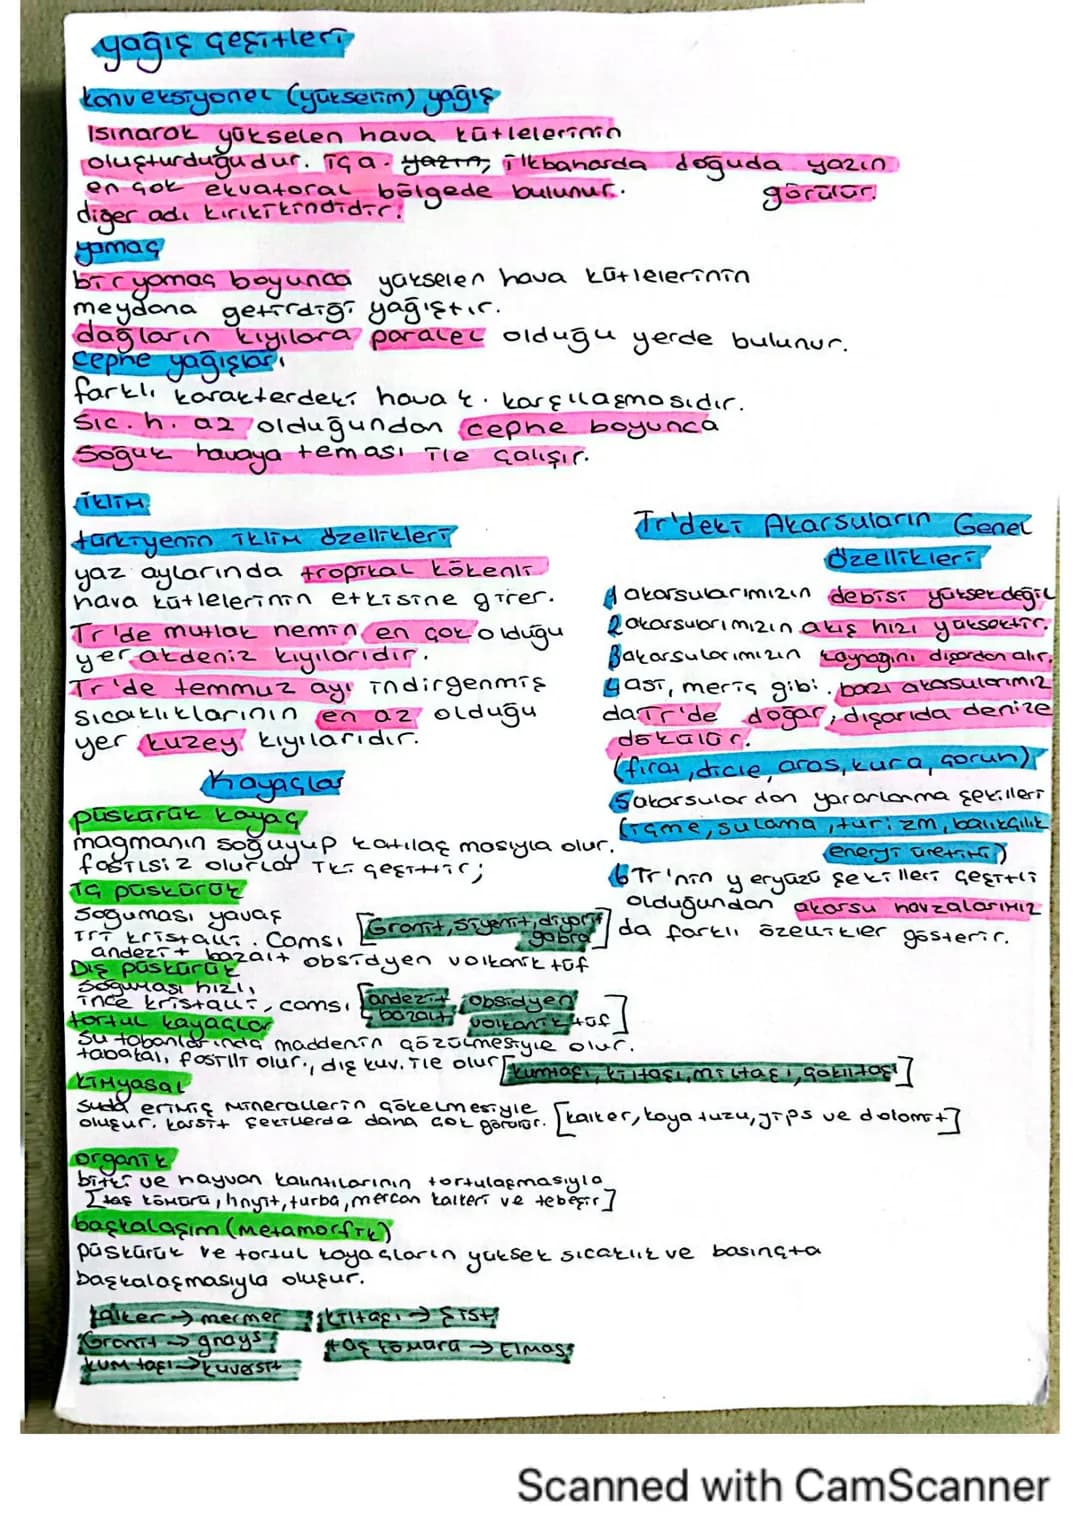 yağış çeşitleri
konveksiyonel (yükselim) yağış
Isınarak yükselen hava kütlelerinin
oluşturduğudur. iç a. yazın, ilkbaharda doğuda yazın
görülür.
en çok ekvatoral bölgede bulunur.
diğer adı kırkikindidir.
yamaç
bir yamaç boyunca yükselen hava kütlelerinin
meydana getirdiği yağıştır.
dağların kıyılara paralel olduğu yerde bulunur.
cephe yağışları
farklı karakterdeki hava k. karşılaşmasıdır.
Sıc. h. az olduğundan cephe boyunca
Soğuk havaya teması ile çalışır.
İklim
türkiyenin iklim özellikleri
yaz aylarında tropikal kökenli
hava kütlelerinin etkisine girer.
Tr'de mutlak nemin en çok olduğu
yer akdeniz kıyılarıdır.
Tr'de temmuz ayı indirgenmiş
sıcaklıklarının en az olduğu
yer kuzey kıyılarıdır.
Tr'deki Akarsuların Genel
Özellikleri
1 akarsularımızın debisi yüksek değil
2 akarsularımızın akış hızı yüksektir.
3 akarsularımızın kaynağını dışardan alır.
4 asi, meriç gibi. bazı akarsularımız
da Tr'de doğar, dışarıda denize
dökülür.
(fırat, dicle, aras, kura, çoruh)
5 akarsulardan yararlanma şekilleri
(içme, sulama, turizm, balıkçılık
enerji üretimi)
6 Tr'nin yeryüzü şekilleri çeşitli
olduğundan akarsu havzalarımız
da farklı özellikler gösterir.
Kayaçlar
püskürük kayaç
magmanın soğuyup katılaşmasıyla olur.
fosilsiz olurlar iki çeşittir;
iç püskürük
Soğuması yavaş
iri kristalli. Camsı [Granit, Siyenit, diyorit
gabro]
andezit bazalt obsidyen volkanik tüf
Dış püskürük
Soğuması hızlı,
ince kristalli, camsı [andezit, obsidyen
bazalt, volkanik tüf]
tortul kayaçlar
Su tabanlarında maddenin çözülmesiyle olur.
tabakalı, fosilli olur., dış kuv. ile olur [kumtaşı, kiltaşı, miltaşı, çakıltaşı]
kimyasal
Suda erimiş minerallerin çökelmesiyle
oluşur. karsit şekillerde daha çok görülür. [kalker, kaya tuzu, jips ve dolomit]
organik
bitki ve hayvan kalıntılarının tortulaşmasıyla
[taş kömürü, linyit, turba, mercan kalkeri ve tebeşir]
başkalaşım (metamorfik)
püskürük ve tortul kayaçların yüksek sıcaklık ve basınçta
başkalaşmasıyla oluşur.
kalker → mermer kiltaşı → şist
Granit → gnays taş kömürü → Elmas
kum taşı → kuversit
Scanned with CamScanner